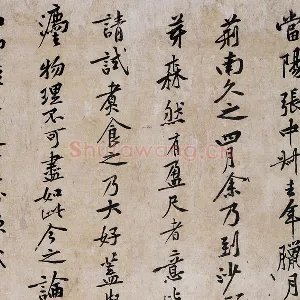 當陽張中叔去年臘月
荊南久之四月余乃到沙
芽森然有盈尺者意
請試煑食之乃大好蓋
灋物理不可盡如此今之論